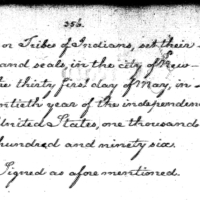 256.
or Tribes of Indians, set their
and seals, in the city of New-
the thirty first day of May, in
entieth year of the independenc
United States, one thousand
hundred and ninety six.
Signed as afore mentioned.